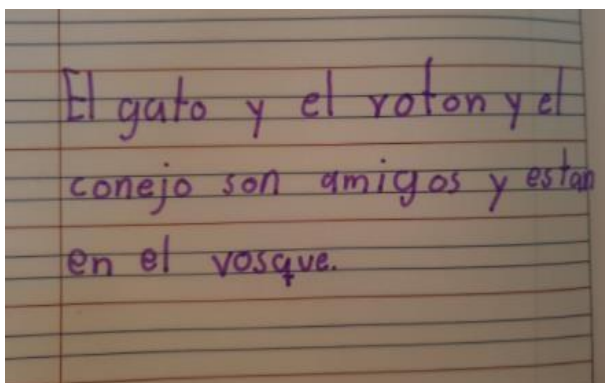 El gato y el roton y el
conejo son amigos y estan
en el vosque.